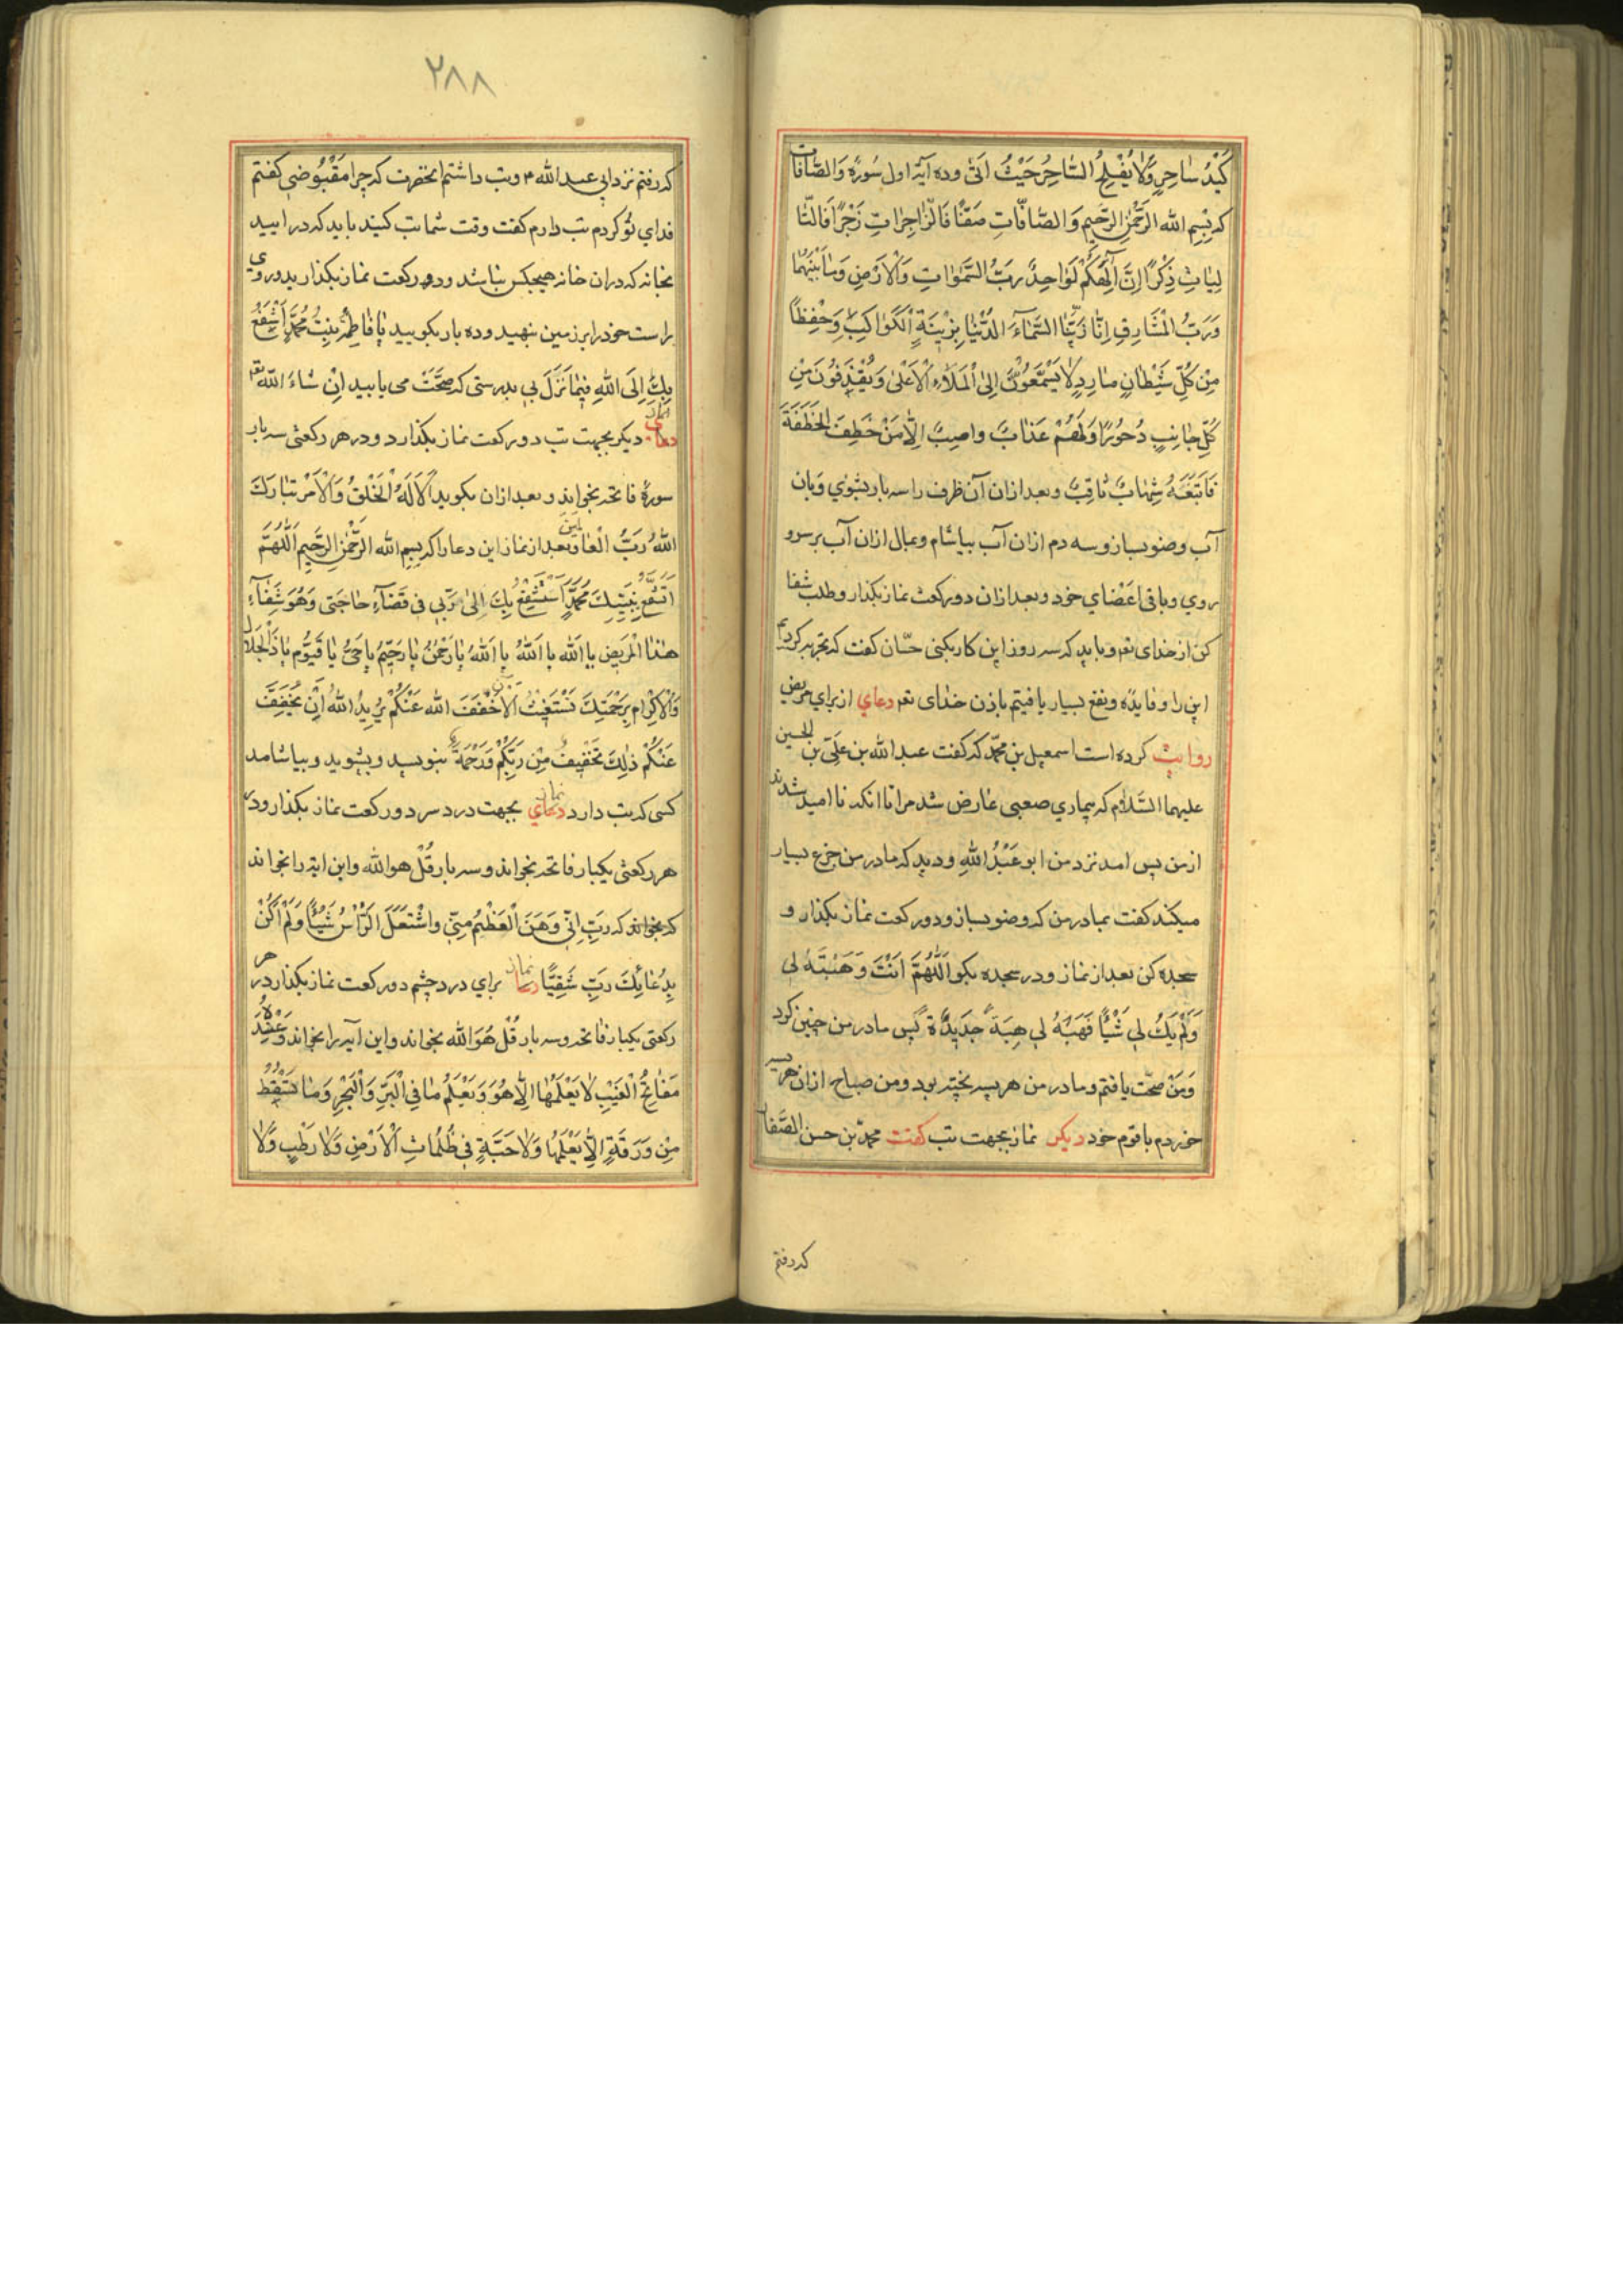 كَيْدُ سَاحِرٍ وَلَا يُفْلِحُ السَّاحِرُ حَيْثُ اَتَى وده آيۀ اول سُورۀ وَالصَّافَّات
كه بِسْمِ الله الرَّحْمٰنِ الرَّحيمِ وَالصَّافَّاتِ صَفًّا فَالزَّاجِرَاتِ زَجْرًا فَالتَّا
لِيَاتِ ذِكْرًا اِنَّ اِلٰهَكُمْ لَوَاحِدٌ رَبُّ السَّمٰوَاتِ وَالْاَرْضِ وَمَا بَيْنَهُمَا
وَرَبُّ الْمَشَارِقِ اِنَّا زَيَّنَّا السَّمَاءَ الدُّنْيَا بِزِينَةٍ الْكَوَاكِبِ وَحِفْظًا
مِنْ كُلِّ شَيْطَانٍ مَارِدٍ لَا يَسَّمَّعُونَ اِلَى الْمَلَاءِ الْاَعْلٰى وَيُقْذَفُونَ مِنْ
كُلِّ جَانِبٍ دُحُورًا وَلَهُمْ عَذَابٌ وَاصِبٌ اِلَّا مَنْ خَطِفَ الْخَطْفَةَ
فَاَتْبَعَهُ شِهَابٌ ثَاقِبٌ وبعد ازان آن ظرف را سه بار بشوي وبان
آب وضو بساز وسه دم ازان آب بياشام وبمال ازان آب بر سر و
روي وباقى اعْضاي خود وبعد ازان دو ركعت نماز بكذار وطلب شفا
كن از خداى تعم وبايد كه سه روز اين كار بكنى حسّان كفت كه تجربه كردم
اين را وفايده ونفع بسيار يافتيم باذن خداى تعم دعاي از براي مريض
روايت كرده است اسمعيل بن محمّد كه كفت عبد الله بن علىّ بن الحسين
عليهما السَّلام كه بيماري صعبى عارض شد مرا تا انكه نا اميد شدند
از من پس امد نزد من ابو عَبْدُ اللهِ وديد كه مادر من جزع بسيار
ميكند كفت بمادر من كه وضو بساز ودو ركعت نماز بكذار و
سجده كن بعد از نماز ودر سجده بكو اَللّٰهُمَّ اَنْتَ وَهَبْتَهُ لى
وَلَمْ يَكُ لى شَيْئًا فَهَبْهُ لى هِبَةً جَديدَةً پس مادر من چنين كرد
وَمَنْ صحّت يافتم ومادر من هريسه پخته بود ومن صباح ازان هريسه
خوردم با قوم خود ديكر نماز بجهت تب كفت محمّد بن حسن الصَّفار
كه رفتم
٢٨٨
كه رفتم نزد ابي عبد الله م وتب داشتم انحضرت كه چرا مَقْبُوضى كفتم
فداي تو كردم تب دارم كفت وقت شما تب كنيد بايد كه در اييد
بخانه كه دران خانه هيچكس نباشد ودو ركعت نماز بكذاريد وروي
راست خود را بر زمين بنهيد وده بار بكوييد يَا فَاطِمَةُ بِنْتُ مُحَمَّدٍ اَشْفَعُ
بِكِ اِلَى اللهِ فِيمَا نَزَلَ بى بدرستى كه صحَّتْ مى يابيد اِنْ شَاءَ اللهُ تعم
نماز
دعاى ديكر بجهت تب دو ركعت نماز بكذارد ودر هر ركعتى سه بار
سورۀ فاتحه بخواند وبعد ازان بكويد اَلَا لَهُ الْخَلْقُ وَالْاَمْرُ تَبَارَكَ
اللهُ رَبُّ الْعَالَمينَ وبعد از نماز اين دعا را كه بِسْمِ الله الرَّحْمٰنِ الرَّحيمِ اَللّٰهُمَّ
بِنَبِيِّكَ مُحَمَّدٍ اَسْتَشْفِعُ بِكَ اِلٰى رَبّى فى قَضَاءِ حَاجَتى وَهُوَ شِفَاءِ
هٰذَا الْمَريضِ يا الله يا اَللهُ يا اَللهُ يَا رَحْمٰنُ يَا رَحِيمُ يَا حَىُّ يَا قَيُّومُ يَا ذَا الْجَلَالِ
وَالْاِكْرَامِ بِرَحْمَتِكَ نَسْتَغيثُ اَلْآنَ خَفَّفَ الله عَنْكُمْ يُرِيدُ اللهُ اَنْ يُخَفِّفَ
عَنْكُمْ ذٰلِكَ تَخْفِيفٌ مِنْ رَبِّكُمْ وَرَحْمَةٌ بنويسد وبشويد وبياشامد
كسى كه تب دارد دعاي نماز بجهت درد سر دو ركعت نماز بكذارد ودر
هر ركعتى يكبار فاتحه بخواند وسه بار قُلْ هو الله واين ايه را بخواند
كه بخواند كه رَبِّ اِنّى وَهَنَ الْعَظْمُ مِنّى وَاشْتَعَلَ الرَّأْسُ شَيْبًا وَلَمْ اَكُنْ
بِدُعَائِكَ رَبِّ شَقِيًّا دعا نماز براي درد چشم دو ركعت نماز بكذارد در هر
ركعتى يكبار فاتحه وسه بار قُلْ هُوَ الله بخواند واين آيه را بخواند وَعِنْدَهُ
مَفَاتِحُ الْغَيْبِ لَا يَعْلَمُهَا اِلَّا هُوَ وَيَعْلَمُ مَا فِى الْبَرِّ وَالْبَحْرِ وَمَا تَسْقُطُ
مِنْ وَرَقَةٍ اِلَّا يَعْلَمُهَا وَلَا حَبَّةٍ فى ظُلُمَاتِ الْاَرْضِ وَلَا رَطْبٍ وَلَا